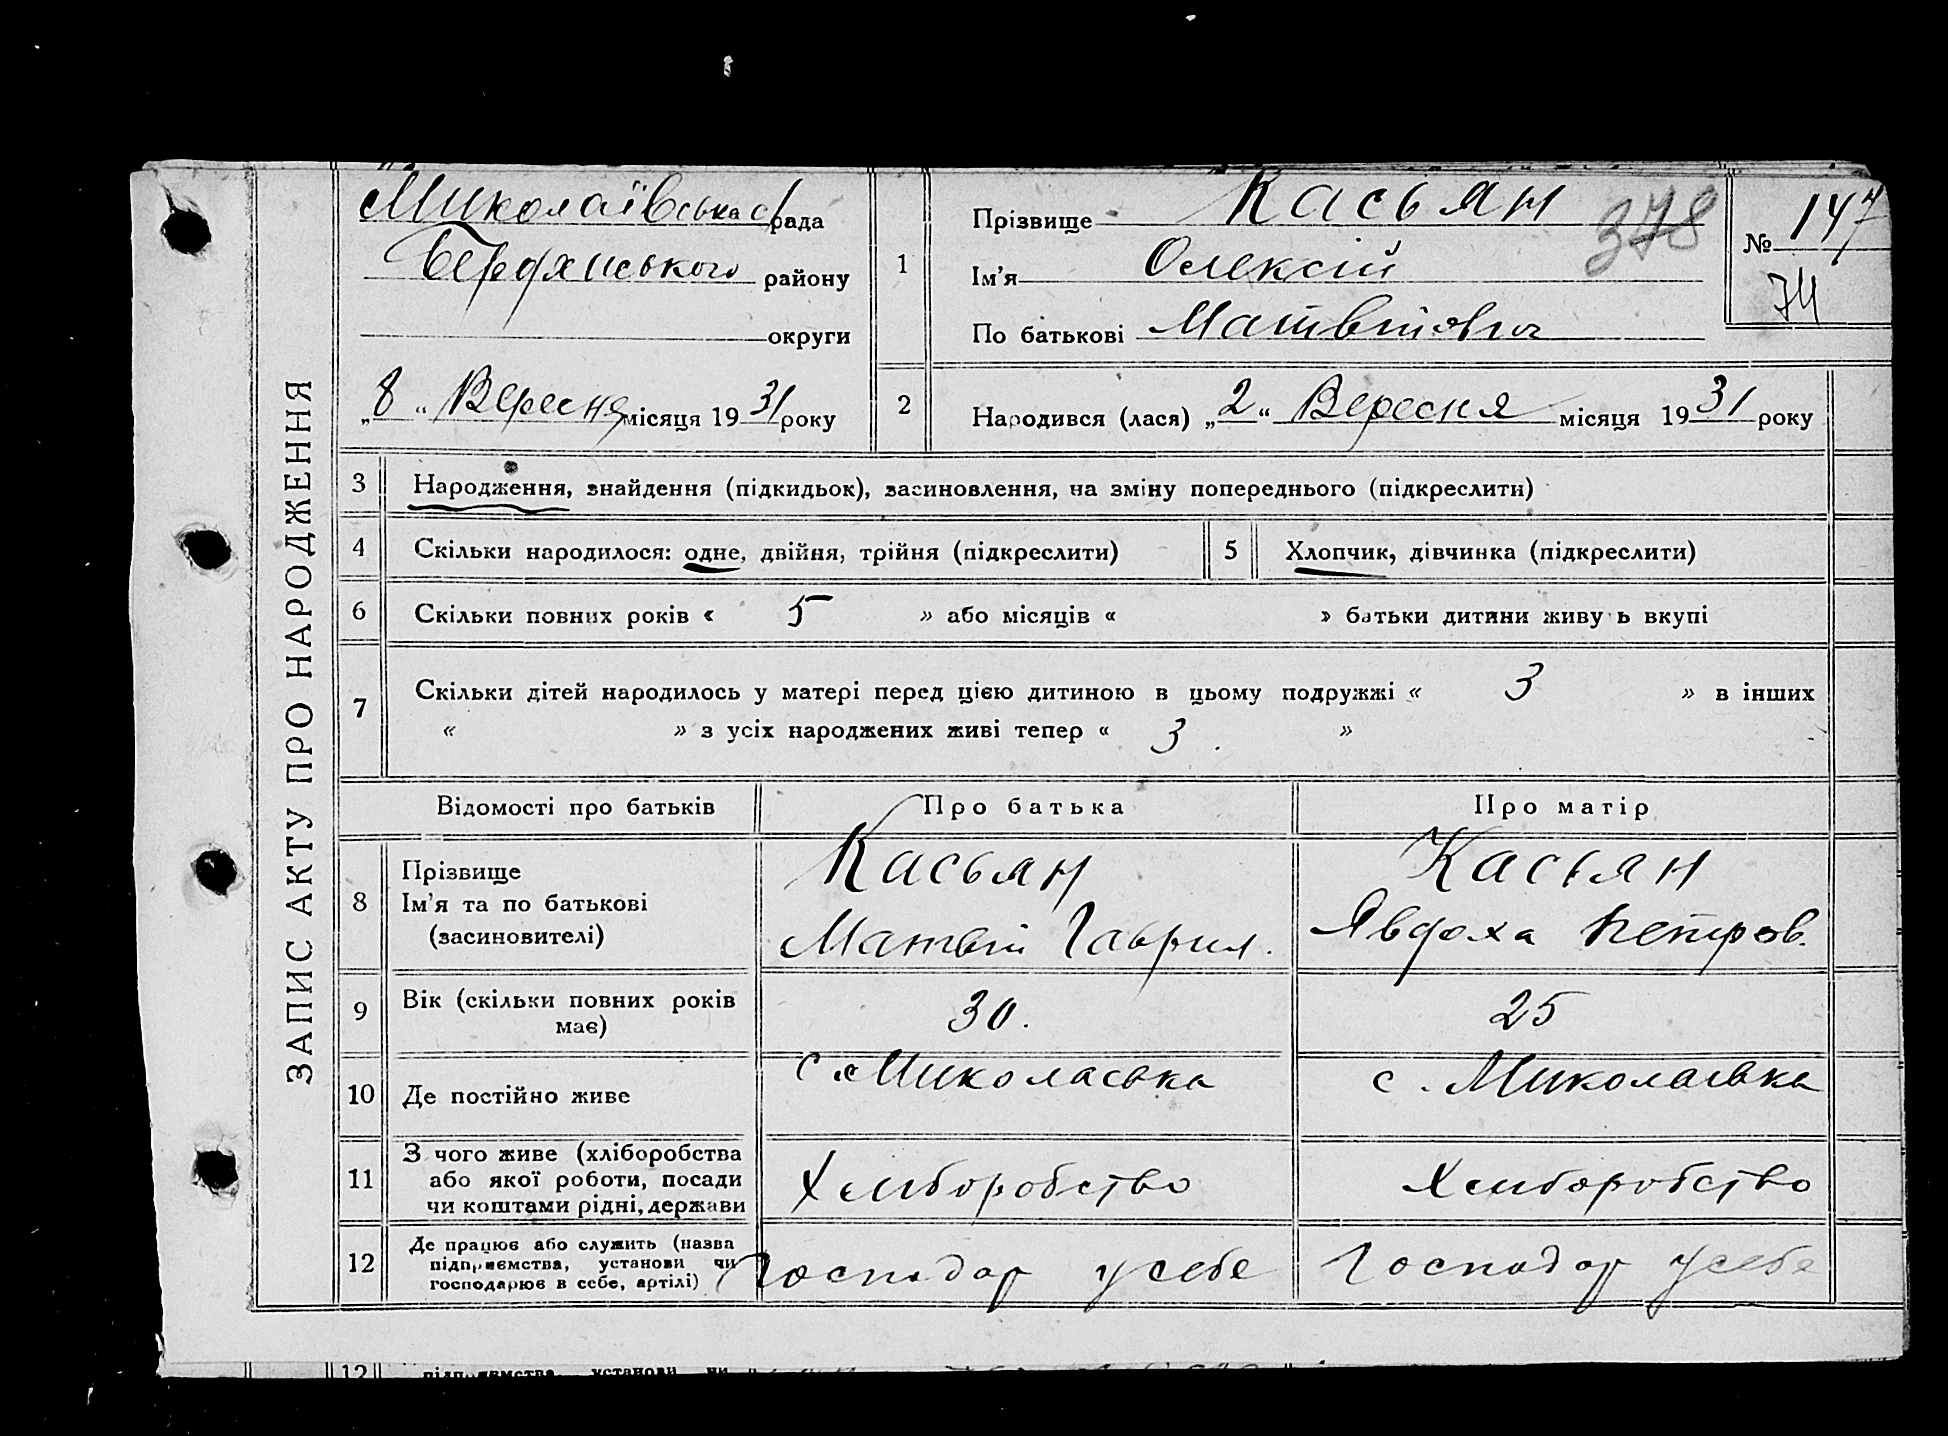 ЗАПИС АКТУ ПРО НАРОДЖЕННЯ
Миколаївська с/рада
Бердянського району
округи
„8“ Вересня місяця 1931 року
1 Прізвище Касьян
Ім'я Олексій
По батькові Матвійович
378
№ 147
74
2 Народився (лася) „2“ Вересня місяця 1931 року
3 Народження, знайдення (підкидьок), засиновлення, на зміну попереднього (підкреслити)
4 Скільки народилося: одне, двійня, трійня (підкреслити)
5 Хлопчик, дівчинка (підкреслити)
6 Скільки повних років « 5 » або місяців « » батьки дитини живуть вкупі
7 Скільки дітей народилось у матері перед цією дитиною в цьому подружжі « 3 » в інших
« » з усіх народжених живі тепер « 3 »
Відомості про батьків Про батька Про матір
8 Прізвище Касьян Касьян
Ім'я та по батькові Матвій Гаврил. Явдоха Петров.
(засиновителі)
9 Вік (скільки повних років 30. 25
має)
10 Де постійно живе с. Миколаївка с. Миколаївка
11 З чого живе (хліборобства
або якої роботи, посади Хліборобство Хліборобство
чи коштами рідні, держави
12 Де працює або служить (назва
підприємства, установи чи Господар у себе Господар у себе
господарює в себе, артілі)
12 підприємства, установи чи